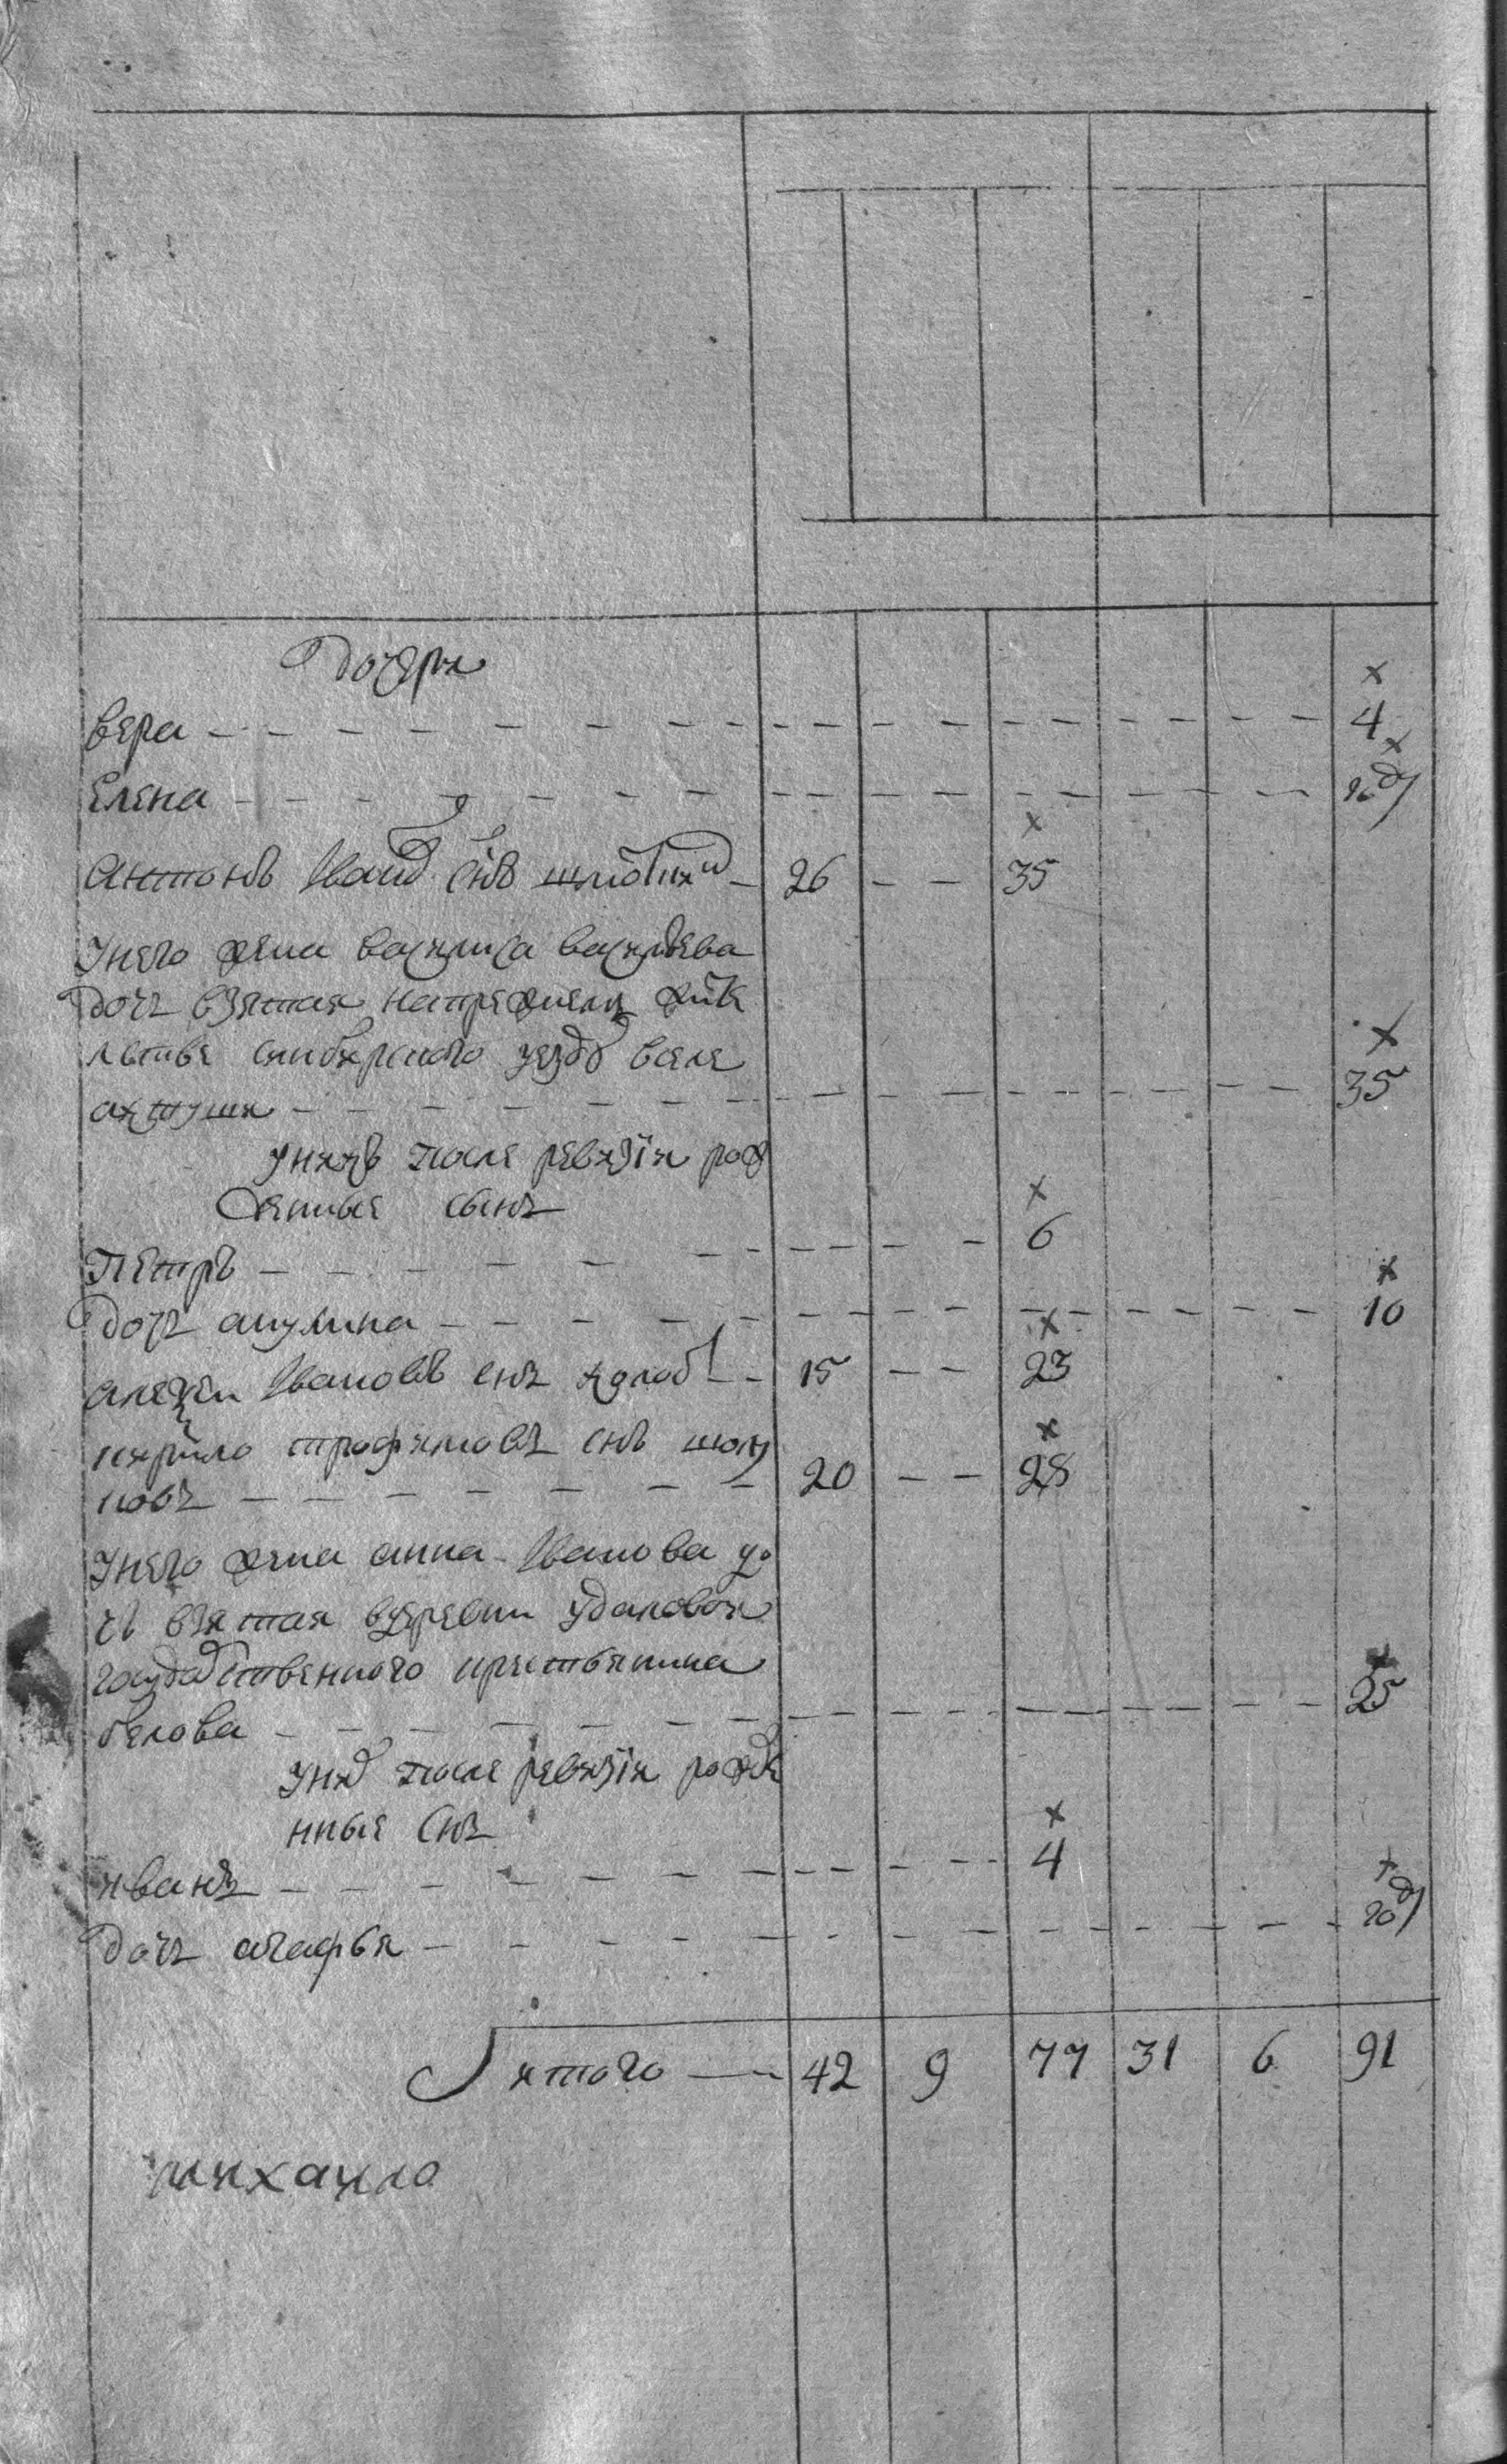 дочери
вера 4
елена год
Антонъ Ивано снъ 26 35
унего жена василиса васильева
дочь взятая напрежнемъ жите
льстве синбирскаго уезду вселе
ахтуши 35
унихъ после ревизiи рож
денные сынъ
Петръ 6
дочь акулина 10
алексеи Ивановъ снъ холо 15 23
кирило трофимовъ снъ
новъ 20 28
унего жена анна Иванова до
чь взятая вдеревни удаловои
государственнаго крестьянина
белова 25
уни после ревизiи рожде
нные снъ
иванъ 4
дочь агафья год
итого 42 9 77 31 6 91
михаило